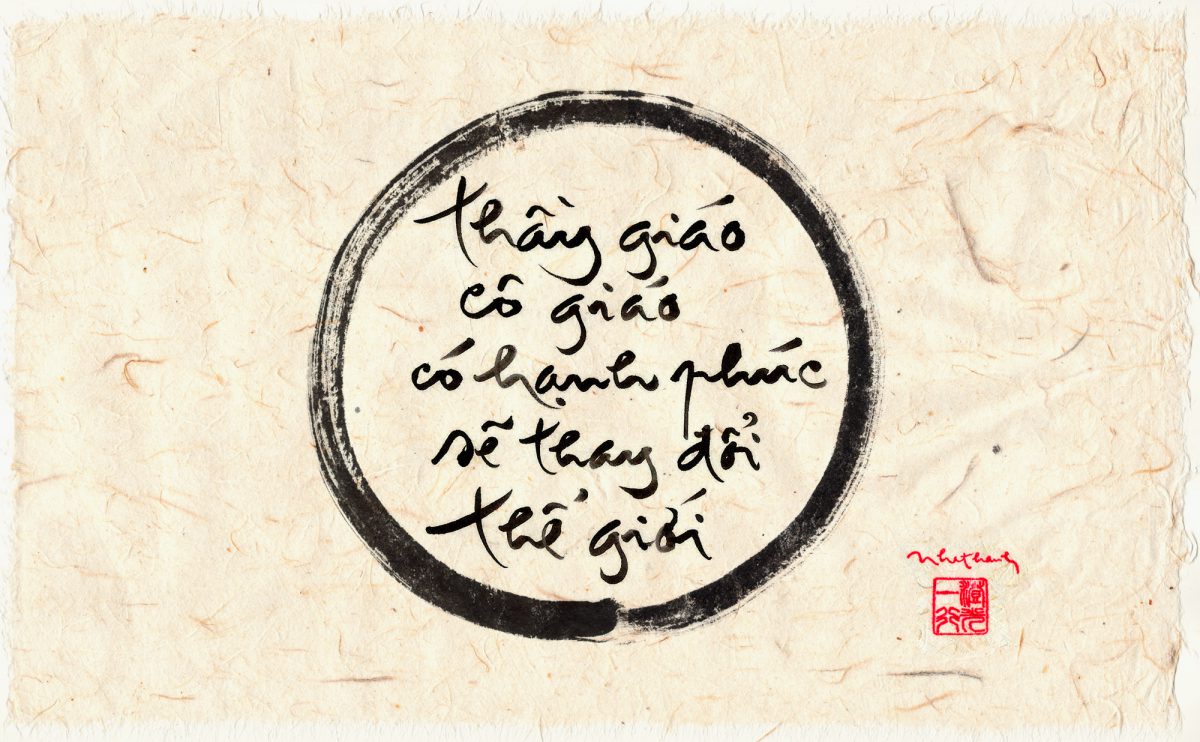 thầy giáo
cô giáo
có hạnh phúc
sẽ thay đổi
thế giới
nhathanh
澄光
一行